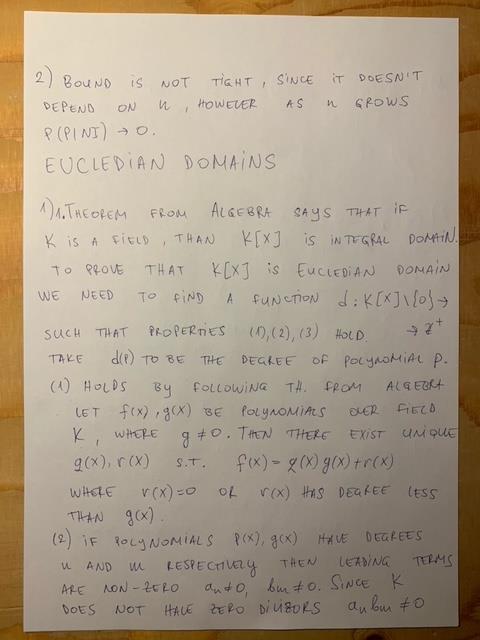 2) BOUND IS NOT TIGHT, SINCE IT DOESN'T
DEPEND ON n, HOWEVER AS n GROWS
P(P|N1) → 0.
EUCLEDIAN DOMAINS
1) 1. THEOREM FROM ALGEBRA SAYS THAT IF
K IS A FIELD, THAN K[X] IS INTEGRAL DOMAIN.
TO PROVE THAT K[X] IS EUCLEDIAN DOMAIN
WE NEED TO FIND A FUNCTION d: K[X]\{0} →
SUCH THAT PROPERTIES (1), (2), (3) HOLD. → Z⁺
TAKE d(P) TO BE THE DEGREE OF POLYNOMIAL P.
(1) HOLDS BY FOLLOWING TH. FROM ALGEBRA
LET f(x), g(x) BE POLYNOMIALS OVER FIELD
K, WHERE g ≠ 0. THEN THERE EXIST UNIQUE
q(x), r(x) S.T. f(x) = q(x) g(x) + r(x)
WHERE r(x) = 0 OR r(x) HAS DEGREE LESS
THAN g(x).
(2) IF POLYNOMIALS P(x), g(x) HAVE DEGREES
n AND m RESPECTIVELY THEN LEADING TERMS
ARE NON-ZERO an ≠ 0, bm ≠ 0. SINCE K
DOES NOT HAVE ZERO DIVIZORS an bm ≠ 0